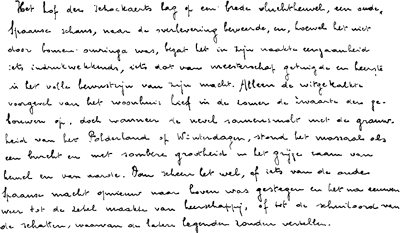 Het hof der Schockaerts lag op een brede vluchtheuvel, een oude,
Spaanse schans, naar de overlevering beweerde, en, hoewel het niet
door bomen omringd was, bezat het in zijn naakte eenzaamheid
iets indrukwekkends, iets dat van meesterschap getuigde en heerste
in het volle bewustzijn van zijn macht. Alleen de witgekalkte
voorgevel van het woonhuis hief in de zomer de zwaarte der ge-
bouwen op, doch wanneer de nevel samensmolt met de grauw-
heid van het Polderland op Winterdagen, stond het massaal als
een burcht en met sombere grootheid in het grijze raam van
hemel en van aarde. Dan scheen het wel, of iets van de oude
Spaanse macht opnieuw naar boven was gestegen en het na eeuwen
weer tot de zetel maakte van heerschappij, of tot de schuiloord van
de schatten, waarvan de latere legenden zouden vertellen.